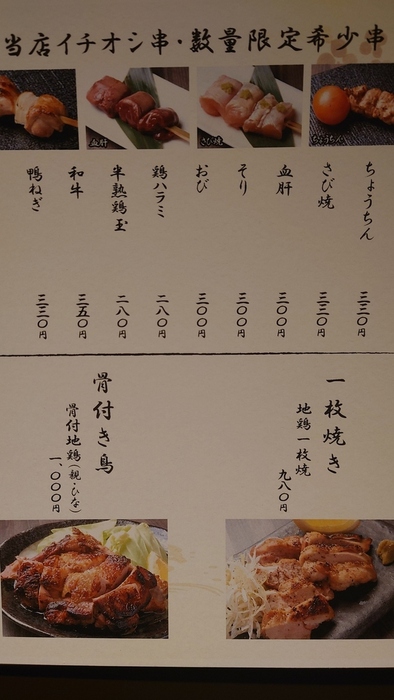 当店イチオシ串・数量限定希少串
血肝
さび焼
ちょうちん
ちょうちん 三三〇円
さび焼 三三〇円
血肝 三〇〇円
そり 三〇〇円
おび 三〇〇円
鶏ハラミ 二八〇円
半熟鶏玉 二八〇円
和牛 三五〇円
鴨ねぎ 三三〇円
一枚焼き
地鶏一枚焼 九八〇円
骨付き鳥
骨付地鶏(親・ひな) 一、〇〇〇円